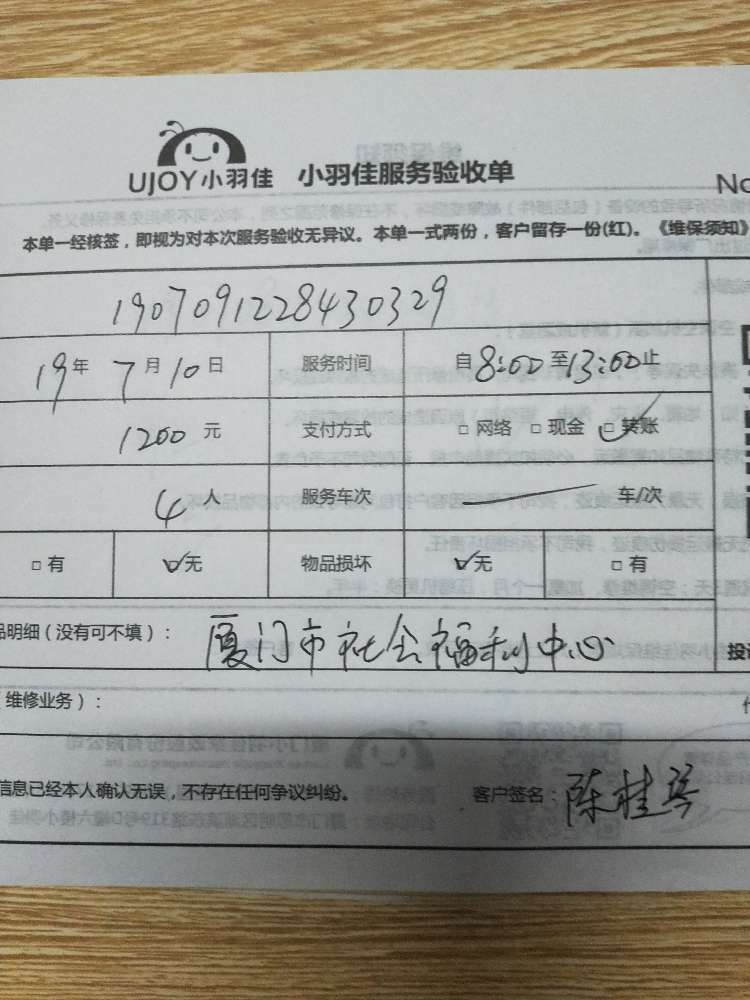 UJOY小羽佳 小羽佳服务验收单
No
本单一经核签，即视为对本次服务验收无异议。本单一式两份，客户留存一份(红)。《维保须知》
1907091228430329
19年 7月10日 服务时间 自8:00至13:00止
1200元 支付方式 □网络 □现金 ☑转账
4人 服务车次 — 车/次
□有 ☑无 物品损坏 ☑无 □有
品明细（没有可不填）： 厦门市社会福利中心
投诉
维修业务）：
信息已经本人确认无误，不存在任何争议纠纷。 客户签名：陈桂琴